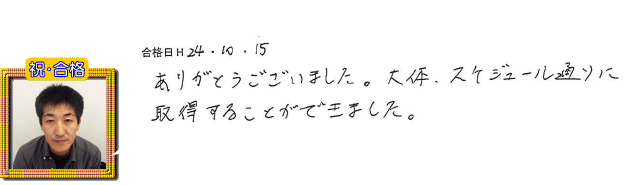 合格日 H 24・10・15
祝・合格
ありがとうございました。大体、スケジュール通りに
取得することができました。